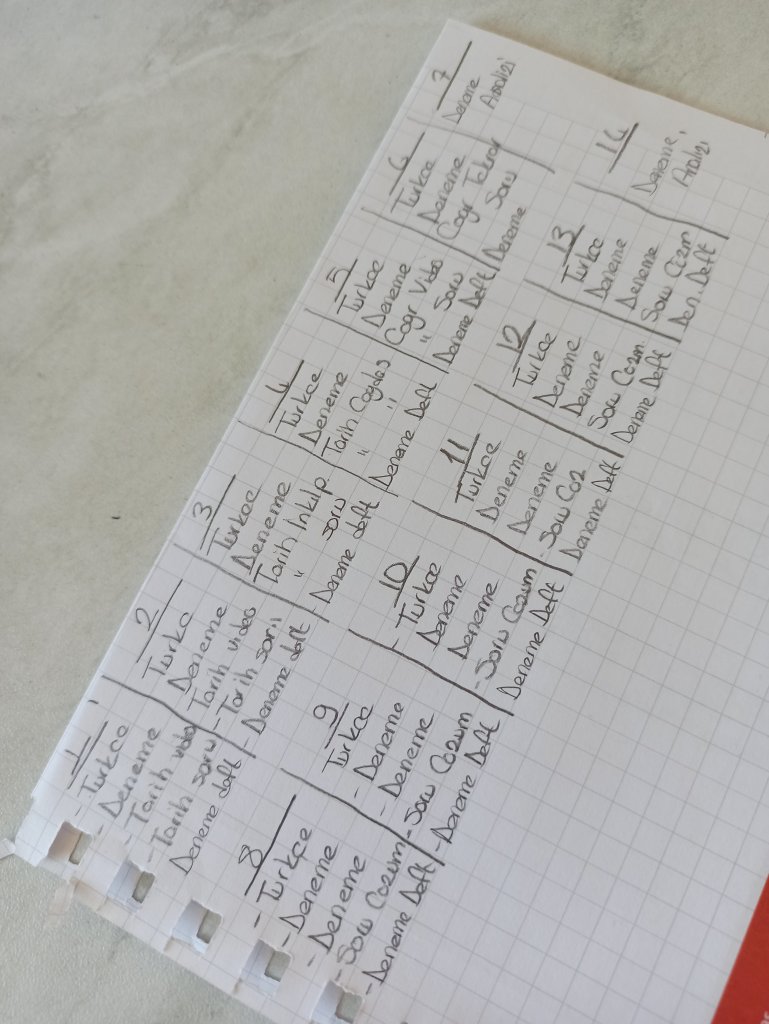 1
- Türkce
- Deneme
- Tarih video
- Tarih soru
Deneme deft
2
Türkc
Deneme
- Tarih video
- Tarih soru
- Deneme deft
3
Türkce
Deneme
Tarih İnkılp
" soru
- Deneme deft
4
Türkce
Deneme
Tarih Cagdas
" "
Deneme Deft
5
Türkce
Deneme
Cogr Video
" Soru
Deneme Deft
6
Türkce
Deneme
Cogr Tekrar
Soru
Deneme
7
Deneme
Analizi
8
- Türkçe
- Deneme
- Deneme
- Soru Cozum
- Deneme Deft
9
Türkce
- Deneme
- Deneme
- Soru Cozum
- Deneme Deft
10
- Türkce
Deneme
Deneme
- Soru Cozum
Deneme Deft
11
Türkce
Deneme
Deneme
- Soru Coz
Deneme Deft
12
Türkce
Deneme
Deneme
Soru Cozm
Deneme Deft
13
Türkce
Deneme
Deneme
Soru Cozm
Den. Deft
14
Deneme,
Analizi